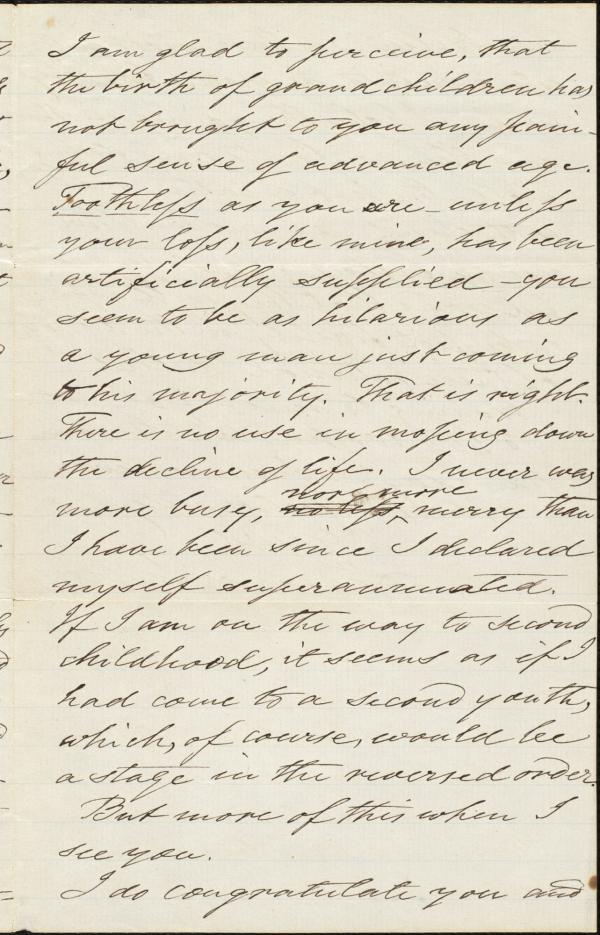 I am glad to perceive, that
the birth of grandchildren has
not brought to you any pain-
ful sense of advanced age.
Toothless as you are - unless
your loss, like mine, has been
artificially supplied - you
seem to be as hilarious as
a young man just coming
to his majority. That is right.
There is no use in moping down
the decline of life. I never was
nor more
more busy, no less, merry than
I have been since I declared
myself superannuated.
If I am on the way to second
childhood, it seems as if I
had come to a second youth,
which, of course, would be
a stage in the reversed order.
But more of this when I
see you.
I do congratulate you and